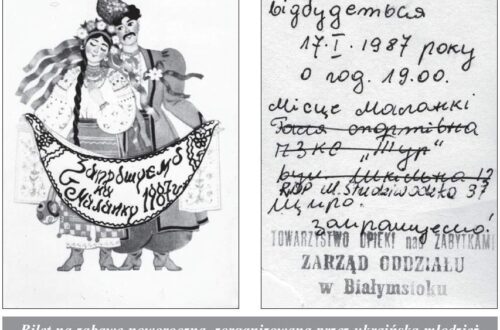 Запрошуємо
на
Маланку 1987 р
відбудеться
17. I. 1987 року
о год. 19.00.
Місце Маланкі
Галя спортівна
ПЗКС "Тур"
вул. Шкільна 12
Щиро
запрошуємо!
TOWARZYSTWO OPIEKI nad ZABYTKAMI
ZARZĄD ODDZIAŁU
w Białymstoku
Bilet na zabawę noworoczną, zorganizowaną przez ukraińską młodzież